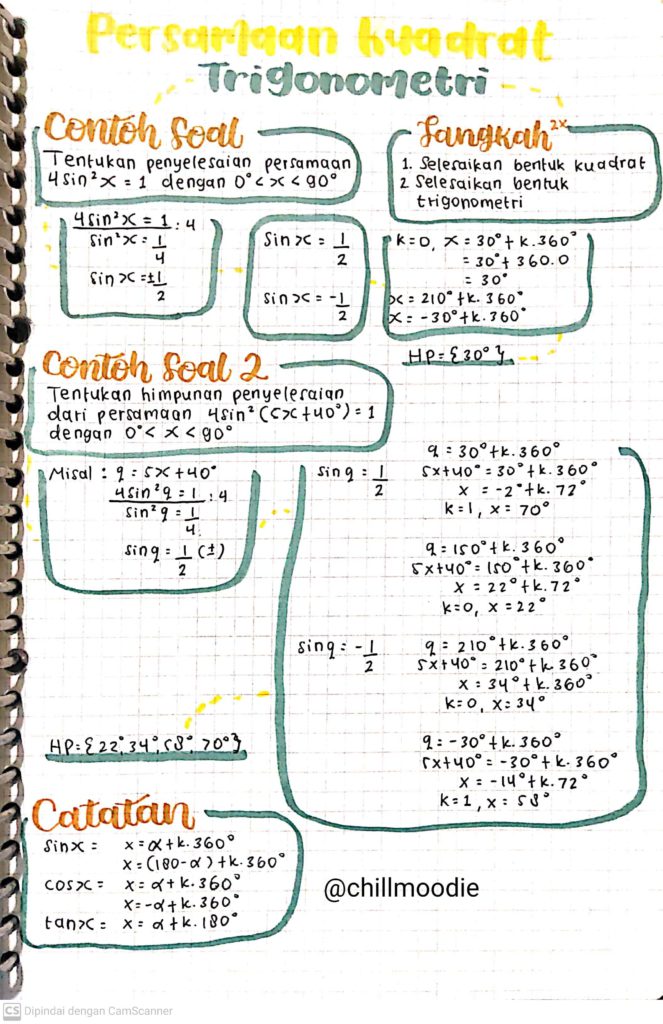 Persamaan kuadrat
Trigonometri
Contoh Soal
Tentukan penyelesaian persamaan
4sin²x = 1 dengan 0° < x < 90°
4sin²x = 1 : 4
sin²x = 1/4
sin x = ±1/2
Sin x = 1/2
sin x = -1/2
Langkah²ˣ
1. Selesaikan bentuk kuadrat
2 Selesaikan bentuk
trigonometri
k=0, x = 30° + k.360°
= 30° + 360.0
= 30°
x = 210° + k. 360°
x = -30° + k. 360°
HP = {30°}
Contoh Soal 2
Tentukan himpunan penyelesaian
dari persamaan 4sin²(5x+40°) = 1
dengan 0° < x < 90°
Misal : q = 5x + 40°
4sin²q = 1 : 4
sin²q = 1/4
sin q = 1/2 (±)
sin q = 1/2
q = 30° + k. 360°
5x+40° = 30° + k. 360°
x = -2° + k. 72°
k=1, x = 70°
q = 150° + k. 360°
5x+40° = 150° + k. 360°
x = 22° + k. 72°
k=0, x = 22°
sin q = -1/2
q = 210° + k. 360°
5x+40° = 210° + k. 360°
x = 34° + k. 360°
k=0, x = 34°
q = -30° + k. 360°
5x+40° = -30° + k. 360°
x = -14° + k. 72°
k=1, x = 58°
HP = {22°, 34°, 58°, 70°}
Catatan
sin x = x = α + k. 360°
x = (180-α) + k. 360°
cos x = x = α + k. 360°
x = -α + k. 360°
tan x = x = α + k. 180°
@chillmoodie
CS Dipindai dengan CamScanner